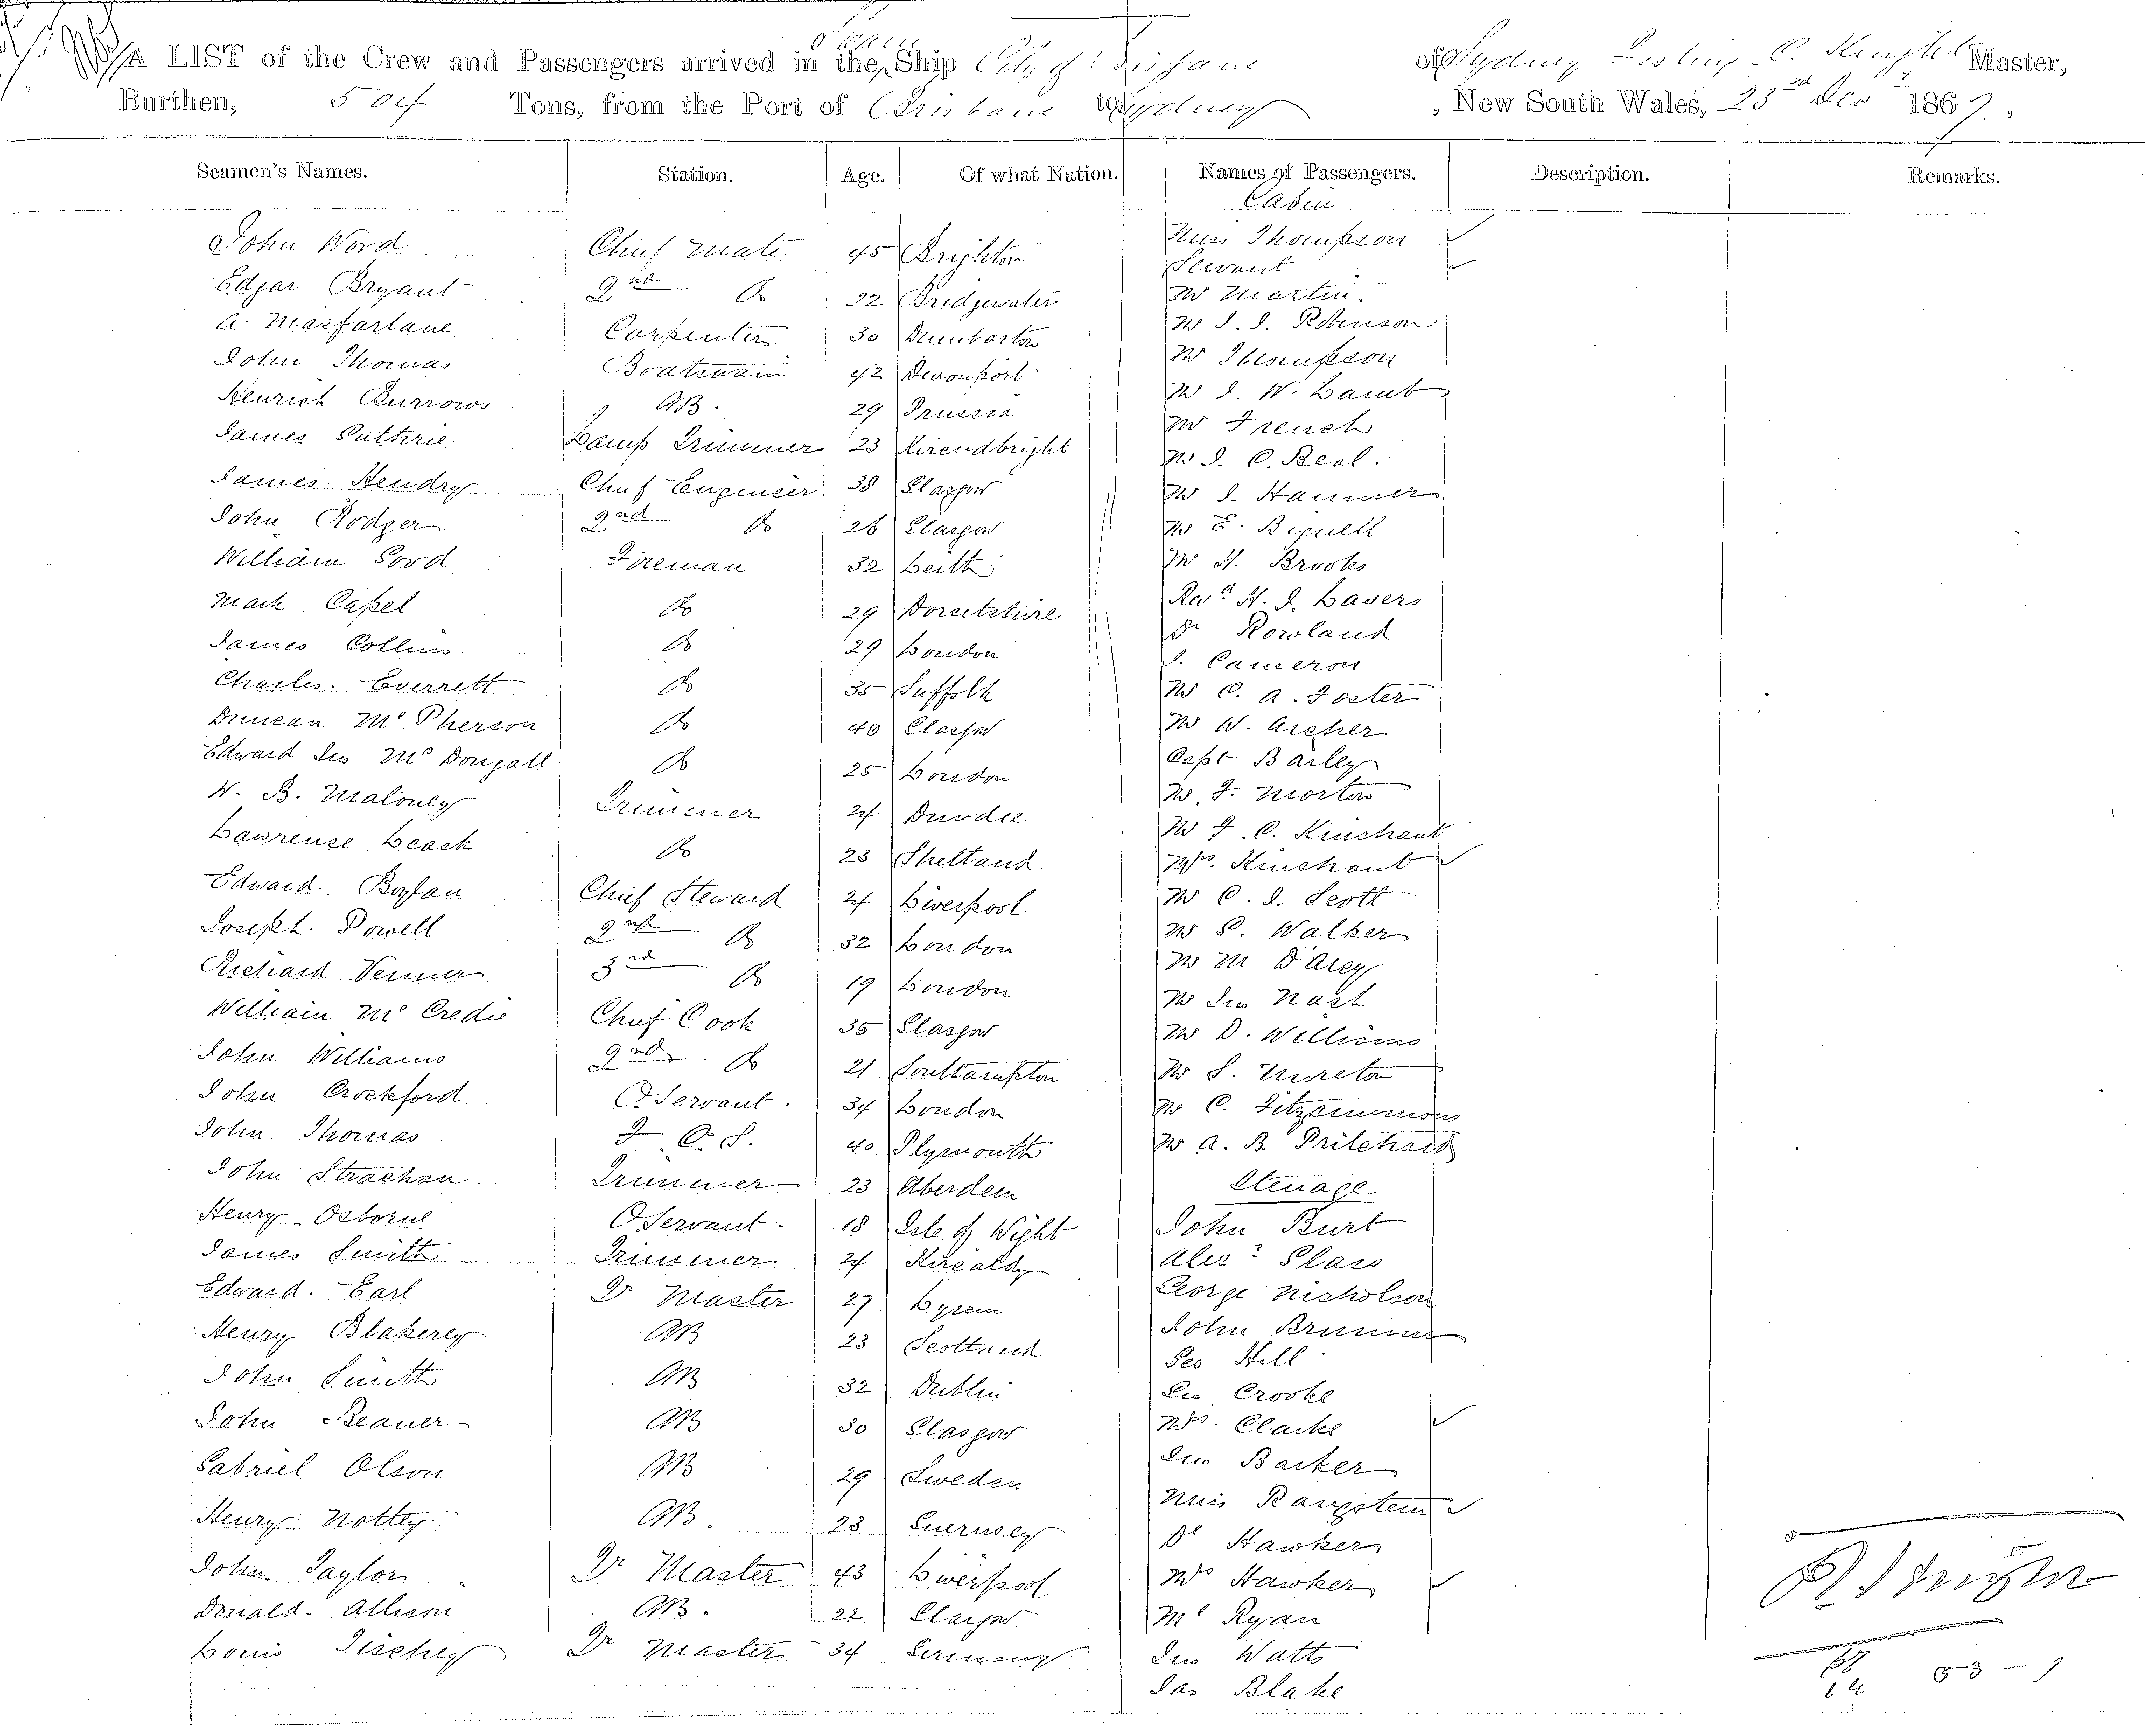 A LIST of the Crew and Passengers arrived in the Steam Ship City of Brisbane of Sydney C. Knight Master,
Burthen, 504 Tons, from the Port of Brisbane to Sydney, New South Wales, 23rd Decr 1869.
Seamen's Names. Station. Age. Of what Nation. Names of Passengers. Description. Remarks.
Cabin
John Word Chief Mate 45 Brighton Miss Thompson
Servant
Edgar Bryant 2nd Do 32 Bridgewater Mr Martin
A. Macfarlane Carpenter 30 Dumbarton Mr J. J. Robinson
John Thomas Boatswain 42 Devonport Mr Thompson
Heinrich Burrows AB. 29 Prussia Mr J. W. Lamb
James Guthrie Lamp Trimmer 23 Kircudbright Mr French
James Hendry Chief Engineer 38 Glasgow Mr J. C. Beal.
John Rodger 2nd Do 26 Glasgow Mr J. Hammer
William Ford Fireman 32 Leith Mr E. Bignell
Mr H. Brooks
Mark Capel Do 29 Dorsetshire Revd H. J. Lavers
James Collins Do 29 London Dr Rowland
J. Cameron
Charles Everrett Do 35 Suffolk Mr C. A. Foster
Duncan McPherson Do 40 Glasgow Mr W. Archer
Edward Jno McDougall Do 25 London Capt Barley
W. B. Maloney Trimmer 24 Dundee Mr F. Morton
Lawrense Leask Do 23 Shetland Mr F. C. Kinchant
Mrs. Kinchant
Edward Boylan Chief Steward 24 Liverpool Mr C. J. Scott
Joseph Powell 2nd Do 32 London Mr S. Walker
Richard Venner 3rd Do 19 London Mr M D'Arcy
Mr Jno Nash
William McCredie Chief Cook 35 Glasgow Mr D. Williams
John Williams 2nd Do 21 Southampton Mr S. Moreton
John Crockford O Servant. 34 London Mr C. Fitzsimmons
John Thomas F. C. S. 40 Plymouth Mr A. B. Pritchard
John Strachan Trimmer 23 Aberdeen Steerage
Henry Osborne O Servant 18 Isle of Wight John Burt
James Smith Trimmer 24 Kircaldy Alexr Glass
Edward Earl Qr Master 27 George Nicholson
Henry Blakerey AB 23 Scotland John Brunner
Geo Hill
John Smith AB 32 Dublin Jno Crooke
John Beaver AB 30 Glasgow Mrs. Clarke
Gabriel Olson AB 29 Sweden Jno Barker
Henry Nottey AB. 23 Guernsey Miss Rangstein
Dl Hawker
John Taylor Qr Master 43 Liverpool Mrs Hawker
Donald Allison AB. 22 Glasgow Ml Ryan
Louis Tischey Qr Master 34 Germany Jno Watts
Jas Blake
53 - 9